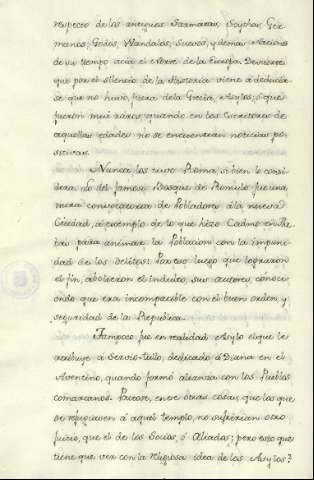 respecto de los antiguos Sarmatas, Scythas, Ger
manos, Godos, Wandalos, Suevos, y demas Nacions
de su tiempo acia el Norte de la Europa. De suerte
que por el silencio de la Historia viene á deducir
se que no huvo, fuera de la Grecia, Asylos; ó que
fueron mui raros, quando en los Escritores de
aquellas edades no se encuentran noticias po
sitivas.
Nunca los tuvo Roma, si bien se consi
dera el del famoso Bosque de Romulo fue una
mera convocatoria de Pobladores á la nueva
Ciudad, á exemplo de lo que hizo Cadmo en The
bas para animar la Poblacion con la impuni
dad de los delitos: Por eso luego que lograron
el fin, abolieron el indulto, sus autores, conoci
endo que era incompatible con el buen orden, y
seguridad de la Republica.
Tampoco fue en realidad Asylo el que le
atribuye á Servio Tulio, dedicado á Diana en el
Aventino, quando formó alianza con los Pueblos
comarcanos. Pactose, entre otras cosas, que los que
se refugiasen á aquel templo, no sufririan otro
juicio, que el de los Socios, ó Aliados; pero esto que
tiene que ver con la Religiosa idea de los Asylos?